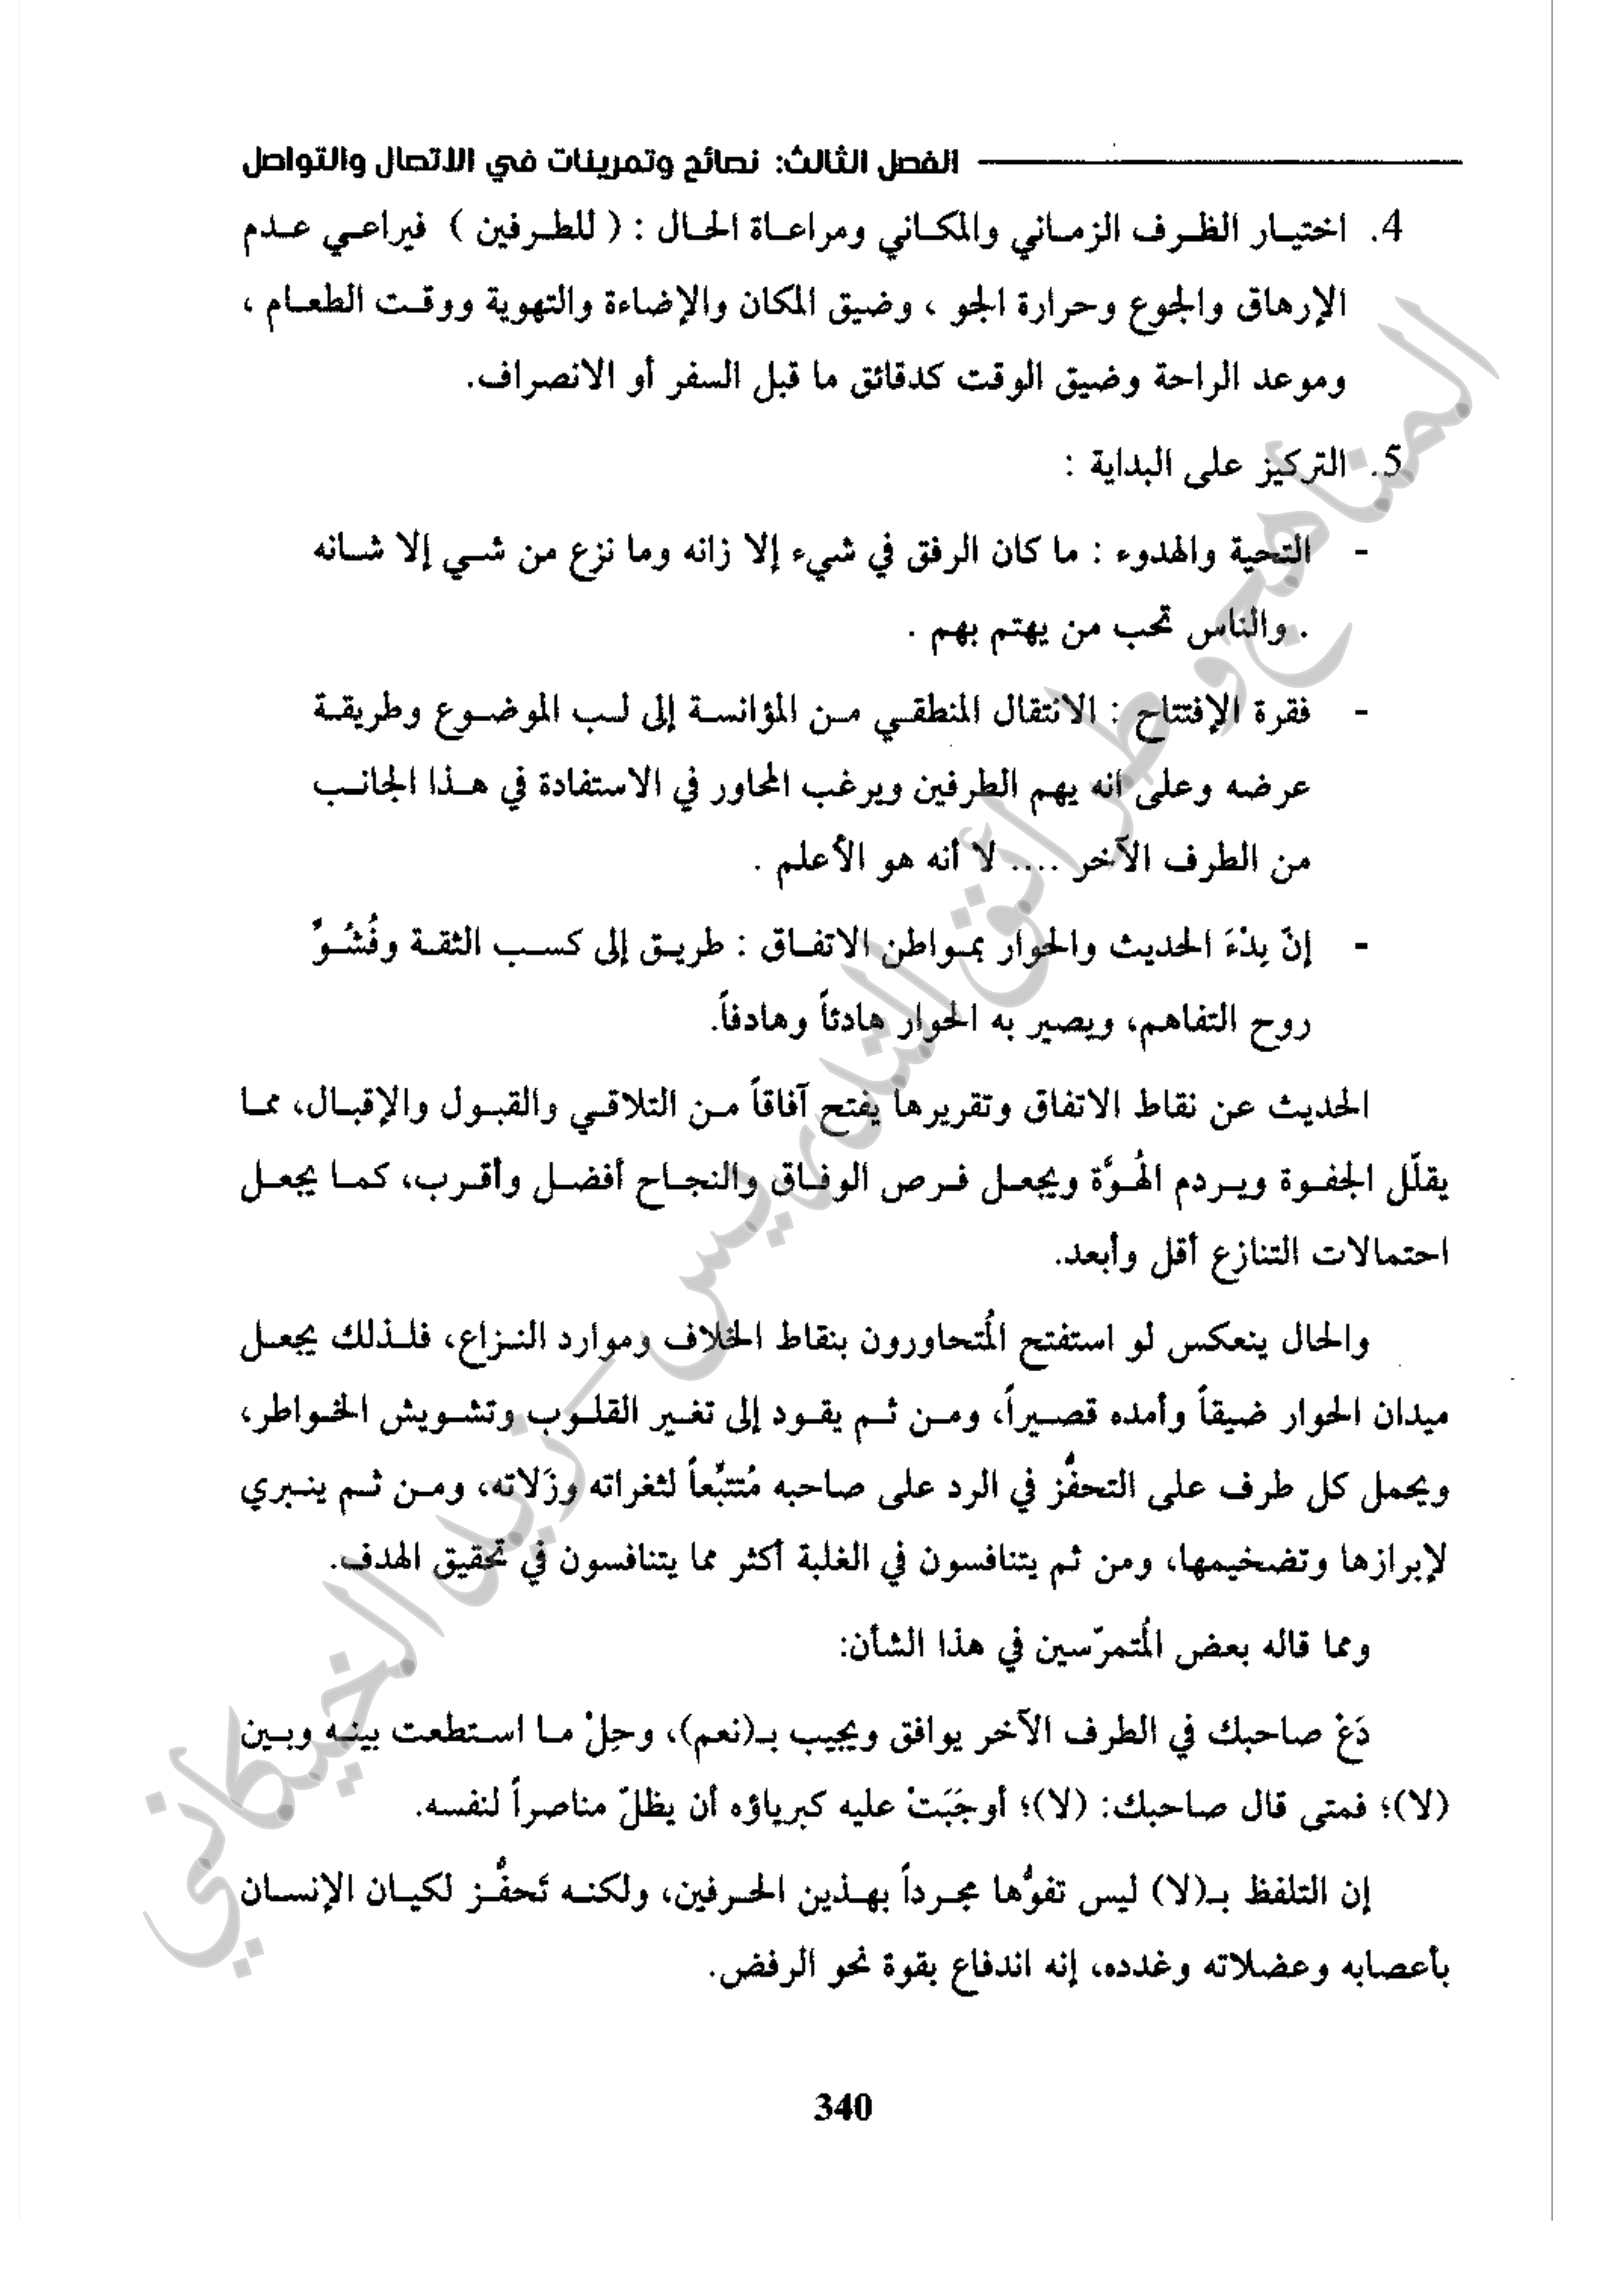 الفصل الثالث: نصائح وتمرينات في الاتصال والتواصل
4. اختيار الظرف الزماني والمكاني ومراعاة الحال : ( للطرفين ) فيراعي عدم
الإرهاق والجوع وحرارة الجو ، وضيق المكان والإضاءة والتهوية ووقت الطعام ،
وموعد الراحة وضيق الوقت كدقائق ما قبل السفر أو الانصراف.
5. التركيز على البداية :
- التحية والهدوء : ما كان الرفق في شيء إلا زانه وما نزع من شي إلا شانه
. والناس تحب من يهتم بهم .
- فقرة الإفتتاح : الانتقال المنطقي من المؤانسة إلى لب الموضوع وطريقة
عرضه وعلى انه يهم الطرفين ويرغب المحاور في الاستفادة في هذا الجانب
من الطرف الآخر .... لا أنه هو الأعلم .
- إنّ بِدْءَ الحديث والحوار بمواطن الاتفاق : طريق إلى كسب الثقة وفُشُوِّ
روح التفاهم، ويصير به الحوار هادئاً وهادفاً.
الحديث عن نقاط الاتفاق وتقريرها يفتح آفاقاً من التلاقي والقبول والإقبال، مما
يقلّل الجفوة ويردم الهُوَّة ويجعل فرص الوفاق والنجاح أفضل وأقرب، كما يجعل
احتمالات التنازع أقل وأبعد.
والحال ينعكس لو استفتح المُتحاورون بنقاط الخلاف وموارد النزاع، فلذلك يجعل
ميدان الحوار ضيقاً وأمده قصيراً، ومن ثم يقود إلى تغير القلوب وتشويش الخواطر،
ويحمل كل طرف على التحفُّز في الرد على صاحبه مُتتبِّعاً لثغراته وزَلاته، ومن ثم ينبري
لإبرازها وتضخيمها، ومن ثم يتنافسون في الغلبة أكثر مما يتنافسون في تحقيق الهدف.
ومما قاله بعض المُتمرّسين في هذا الشأن:
دَعْ صاحبك في الطرف الآخر يوافق ويجيب بـ(نعم)، وحِلْ ما استطعت بينه وبين
(لا)؛ فمتى قال صاحبك: (لا)؛ أوجَبَتْ عليه كبرياؤه أن يظلّ مناصراً لنفسه.
إن التلفظ بـ(لا) ليس تفوُّها مجرداً بهذين الحرفين، ولكنه تَحفُّز لكيان الإنسان
بأعصابه وعضلاته وغدده، إنه اندفاع بقوة نحو الرفض.
340
المناهج وطرائق التدريس - زيد الخيكاني